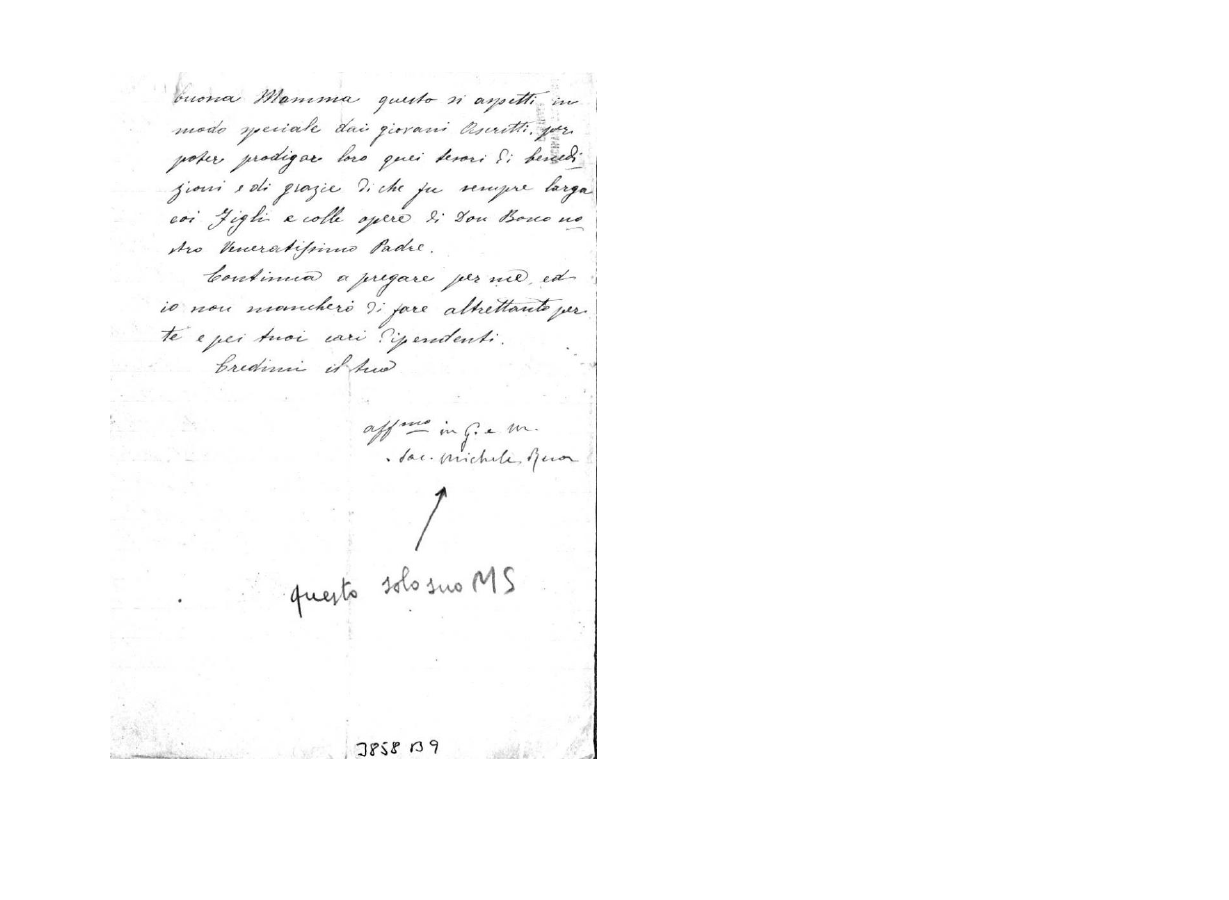 buona Mamma questo si aspetti in
modo speciale dai giovani Ascritti, per
poter prodigar loro quei tesori di benedi
zioni e di grazie di che fu sempre larga
coi Figli e colle opere di Don Bosco no
stro Veneratissimo Padre.
Continua a pregare per me, ed
io non mancherò di fare altrettanto per
te e pei tuoi cari dipendenti.
Credimi il tuo
aff.mo in G. e M.
Sac. Michele Rua
questo solo suo MS
3858 B 9